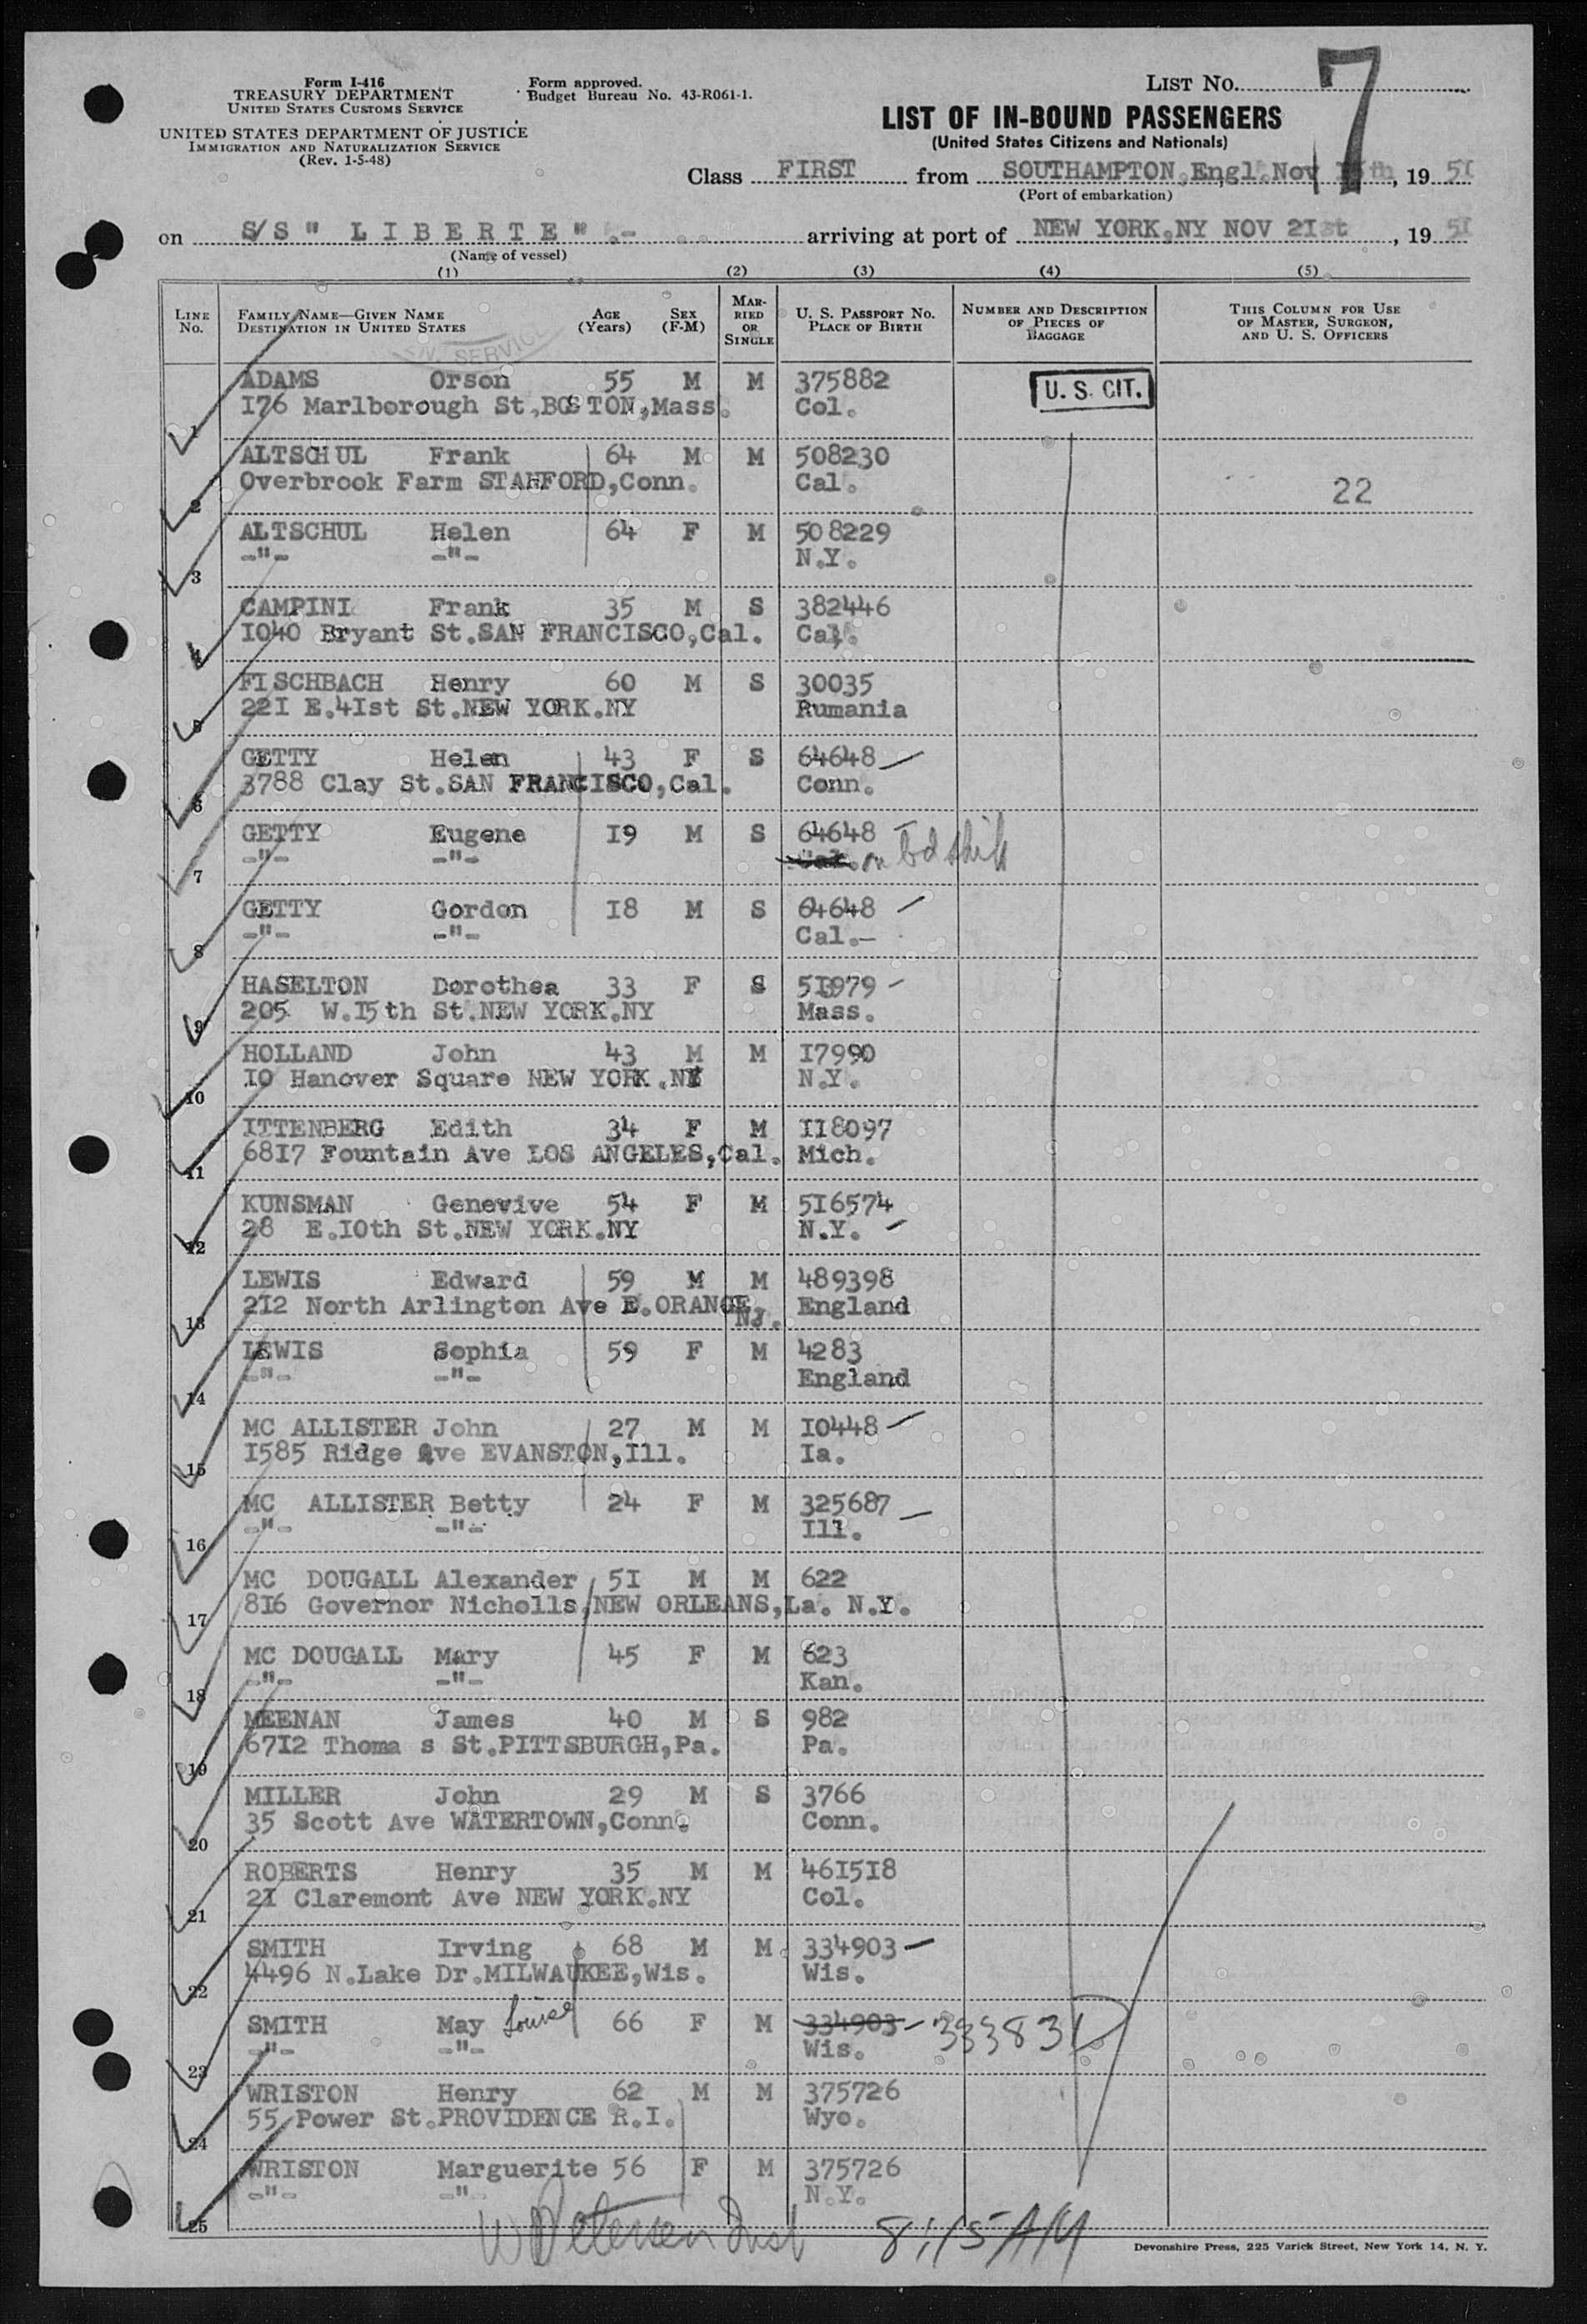 Form I-416
TREASURY DEPARTMENT
UNITED STATES CUSTOMS SERVICE
UNITED STATES DEPARTMENT OF JUSTICE
IMMIGRATION AND NATURALIZATION SERVICE
(Rev. 1-5-48)
Form approved.
Budget Bureau No. 43-R061-1.
LIST NO. 7
LIST OF IN-BOUND PASSENGERS
(United States Citizens and Nationals)
Class FIRST from SOUTHAMPTON,Engl.Nov , 19 50
(Port of embarkation)
on S/S " L I B E R T E " .- arriving at port of NEW YORK,NY NOV 2Ist , 19 50
(Name of vessel)
(1) (2) (3) (4) (5)
LINE NO. FAMILY NAME—GIVEN NAME DESTINATION IN UNITED STATES AGE (YEARS) SEX (F-M) MARRIED OR SINGLE U. S. PASSPORT NO. PLACE OF BIRTH NUMBER AND DESCRIPTION OF PIECES OF BAGGAGE THIS COLUMN FOR USE OF MASTER, SURGEON, AND U. S. OFFICERS
SERVICE
ADAMS Orson 55 M M 375882 U. S. CIT.
1 I76 Marlborough St,BOSTON,Mass. Col.
ALTSCHUL Frank 64 M M 508230
2 Overbrook Farm STAMFORD,Conn. Cal. 22
ALTSCHUL Helen 64 F M 508229
3 -"- -"- N.Y.
CAMPINI Frank 35 M S 382446
4 I040 Bryant St.SAN FRANCISCO,Cal. Cal.
FISCHBACH Henry 60 M S 30035
5 22I E.4Ist St.NEW YORK.NY Rumania
GETTY Helen 43 F S 64648
6 3788 Clay St.SAN FRANCISCO,Cal. Conn.
GETTY Eugene I9 M S 64648
7 -"- -"- Cal. on
GETTY Gordon I8 M S 64648
8 -"- -"- Cal.-
HASELTON Dorothea 33 F S 5I979
9 205 W.I5th St.NEW YORK.NY Mass.
HOLLAND John 43 M M I7990
10 I0 Hanover Square NEW YORK.NY N.Y.
ITTENBERG Edith 34 F M II8097
11 68I7 Fountain Ave LOS ANGELES,Cal. Mich.
KUNSMAN Genevive 54 F M 5I6574
12 28 E.I0th St.NEW YORK.NY N.Y.
LEWIS Edward 59 M M 489398
13 2I2 North Arlington Ave E.ORANGE, NJ. England
LEWIS Sophia 59 F M 4283
14 -"- -"- England
MC ALLISTER John 27 M M I0448
15 I585 Ridge Ave EVANSTON,Ill. Ia.
MC ALLISTER Betty 24 F M 325687
16 -"- -"- Ill.
MC DOUGALL Alexander 5I M M 622
17 8I6 Governor Nicholls,NEW ORLEANS,La. N.Y.
MC DOUGALL Mary 45 F M 623
18 -"- -"- Kan.
MEENAN James 40 M S 982
19 67I2 Thoma s St.PITTSBURGH,Pa. Pa.
MILLER John 29 M S 3766
20 35 Scott Ave WATERTOWN,Conn. Conn.
ROBERTS Henry 35 M M 46I5I8
21 2I Claremont Ave NEW YORK.NY Col.
SMITH Irving 68 M M 334903
22 4496 N.Lake Dr.MILWAUKEE,Wis. Wis.
SMITH May Louise 66 F M 334903 - 333831
23 -"- -"- Wis.
WRISTON Henry 62 M M 375726
24 55 Power St.PROVIDENCE R.I. Wyo.
WRISTON Marguerite 56 F M 375726
25 -"- -"- N.Y.
W Petersen Insp 8:15 AM
Devonshire Press, 225 Varick Street, New York 14, N. Y.